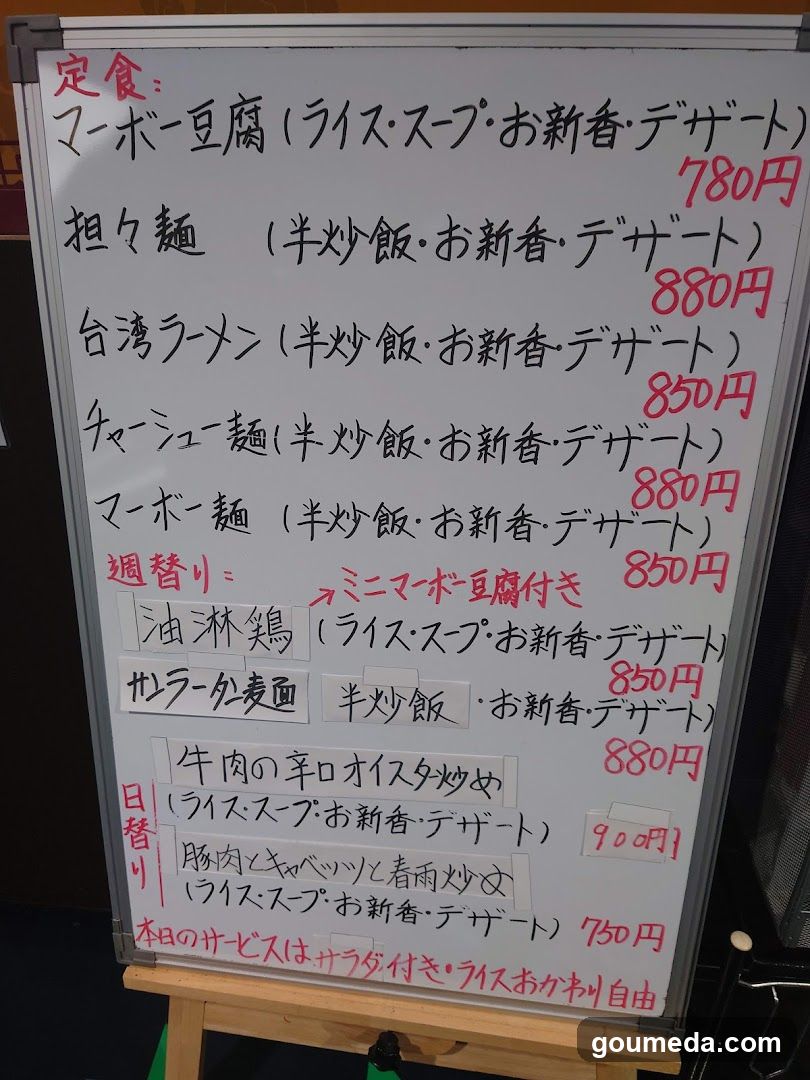 定食:
マーボー豆腐(ライス・スープ・お新香・デザート)
780円
担々麺 (半炒飯・お新香・デザート)
880円
台湾ラーメン(半炒飯・お新香・デザート)
850円
チャーシュー麺(半炒飯・お新香・デザート)
880円
マーボー麺 (半炒飯・お新香・デザート)
850円
週替り:
→ミニマーボー豆腐付き
油淋鶏 (ライス・スープ・お新香・デザート)
850円
サンラータン麦面 半炒飯・お新香・デザート)
880円
日替り
牛肉の辛口オイスター炒め
(ライス・スープ・お新香・デザート)
900円
豚肉とキャベッツと春雨炒め
(ライス・スープ・お新香・デザート)
750円
本日のサービスはサラダ付き・ライスおかわり自由
goumeda.com